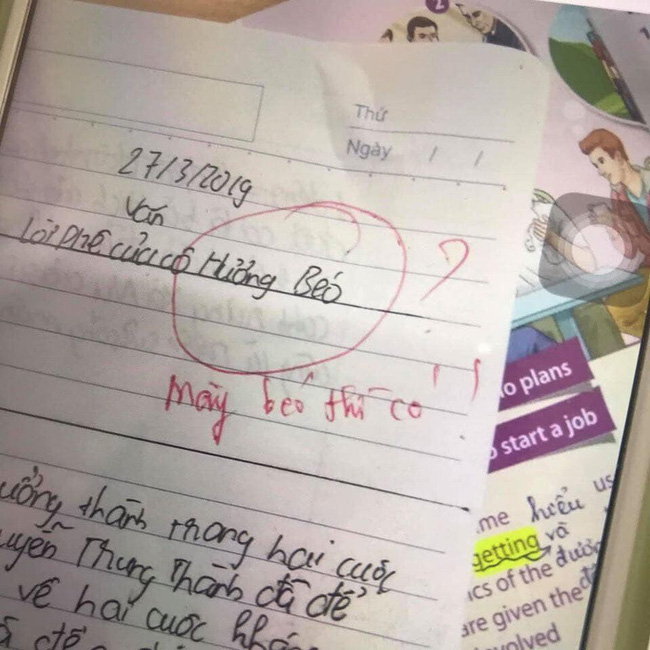 2
Thứ
Ngày / /
27/3/2019
Văn
Lời phê của cô Hưởng Béo
?
Mày béo thì có !!
thành trong hai cuộc
Trung Thành đã để
về hai cuộc
để
o plans
start a job
me hiểu us
getting và
ics of the được
are given the
volved